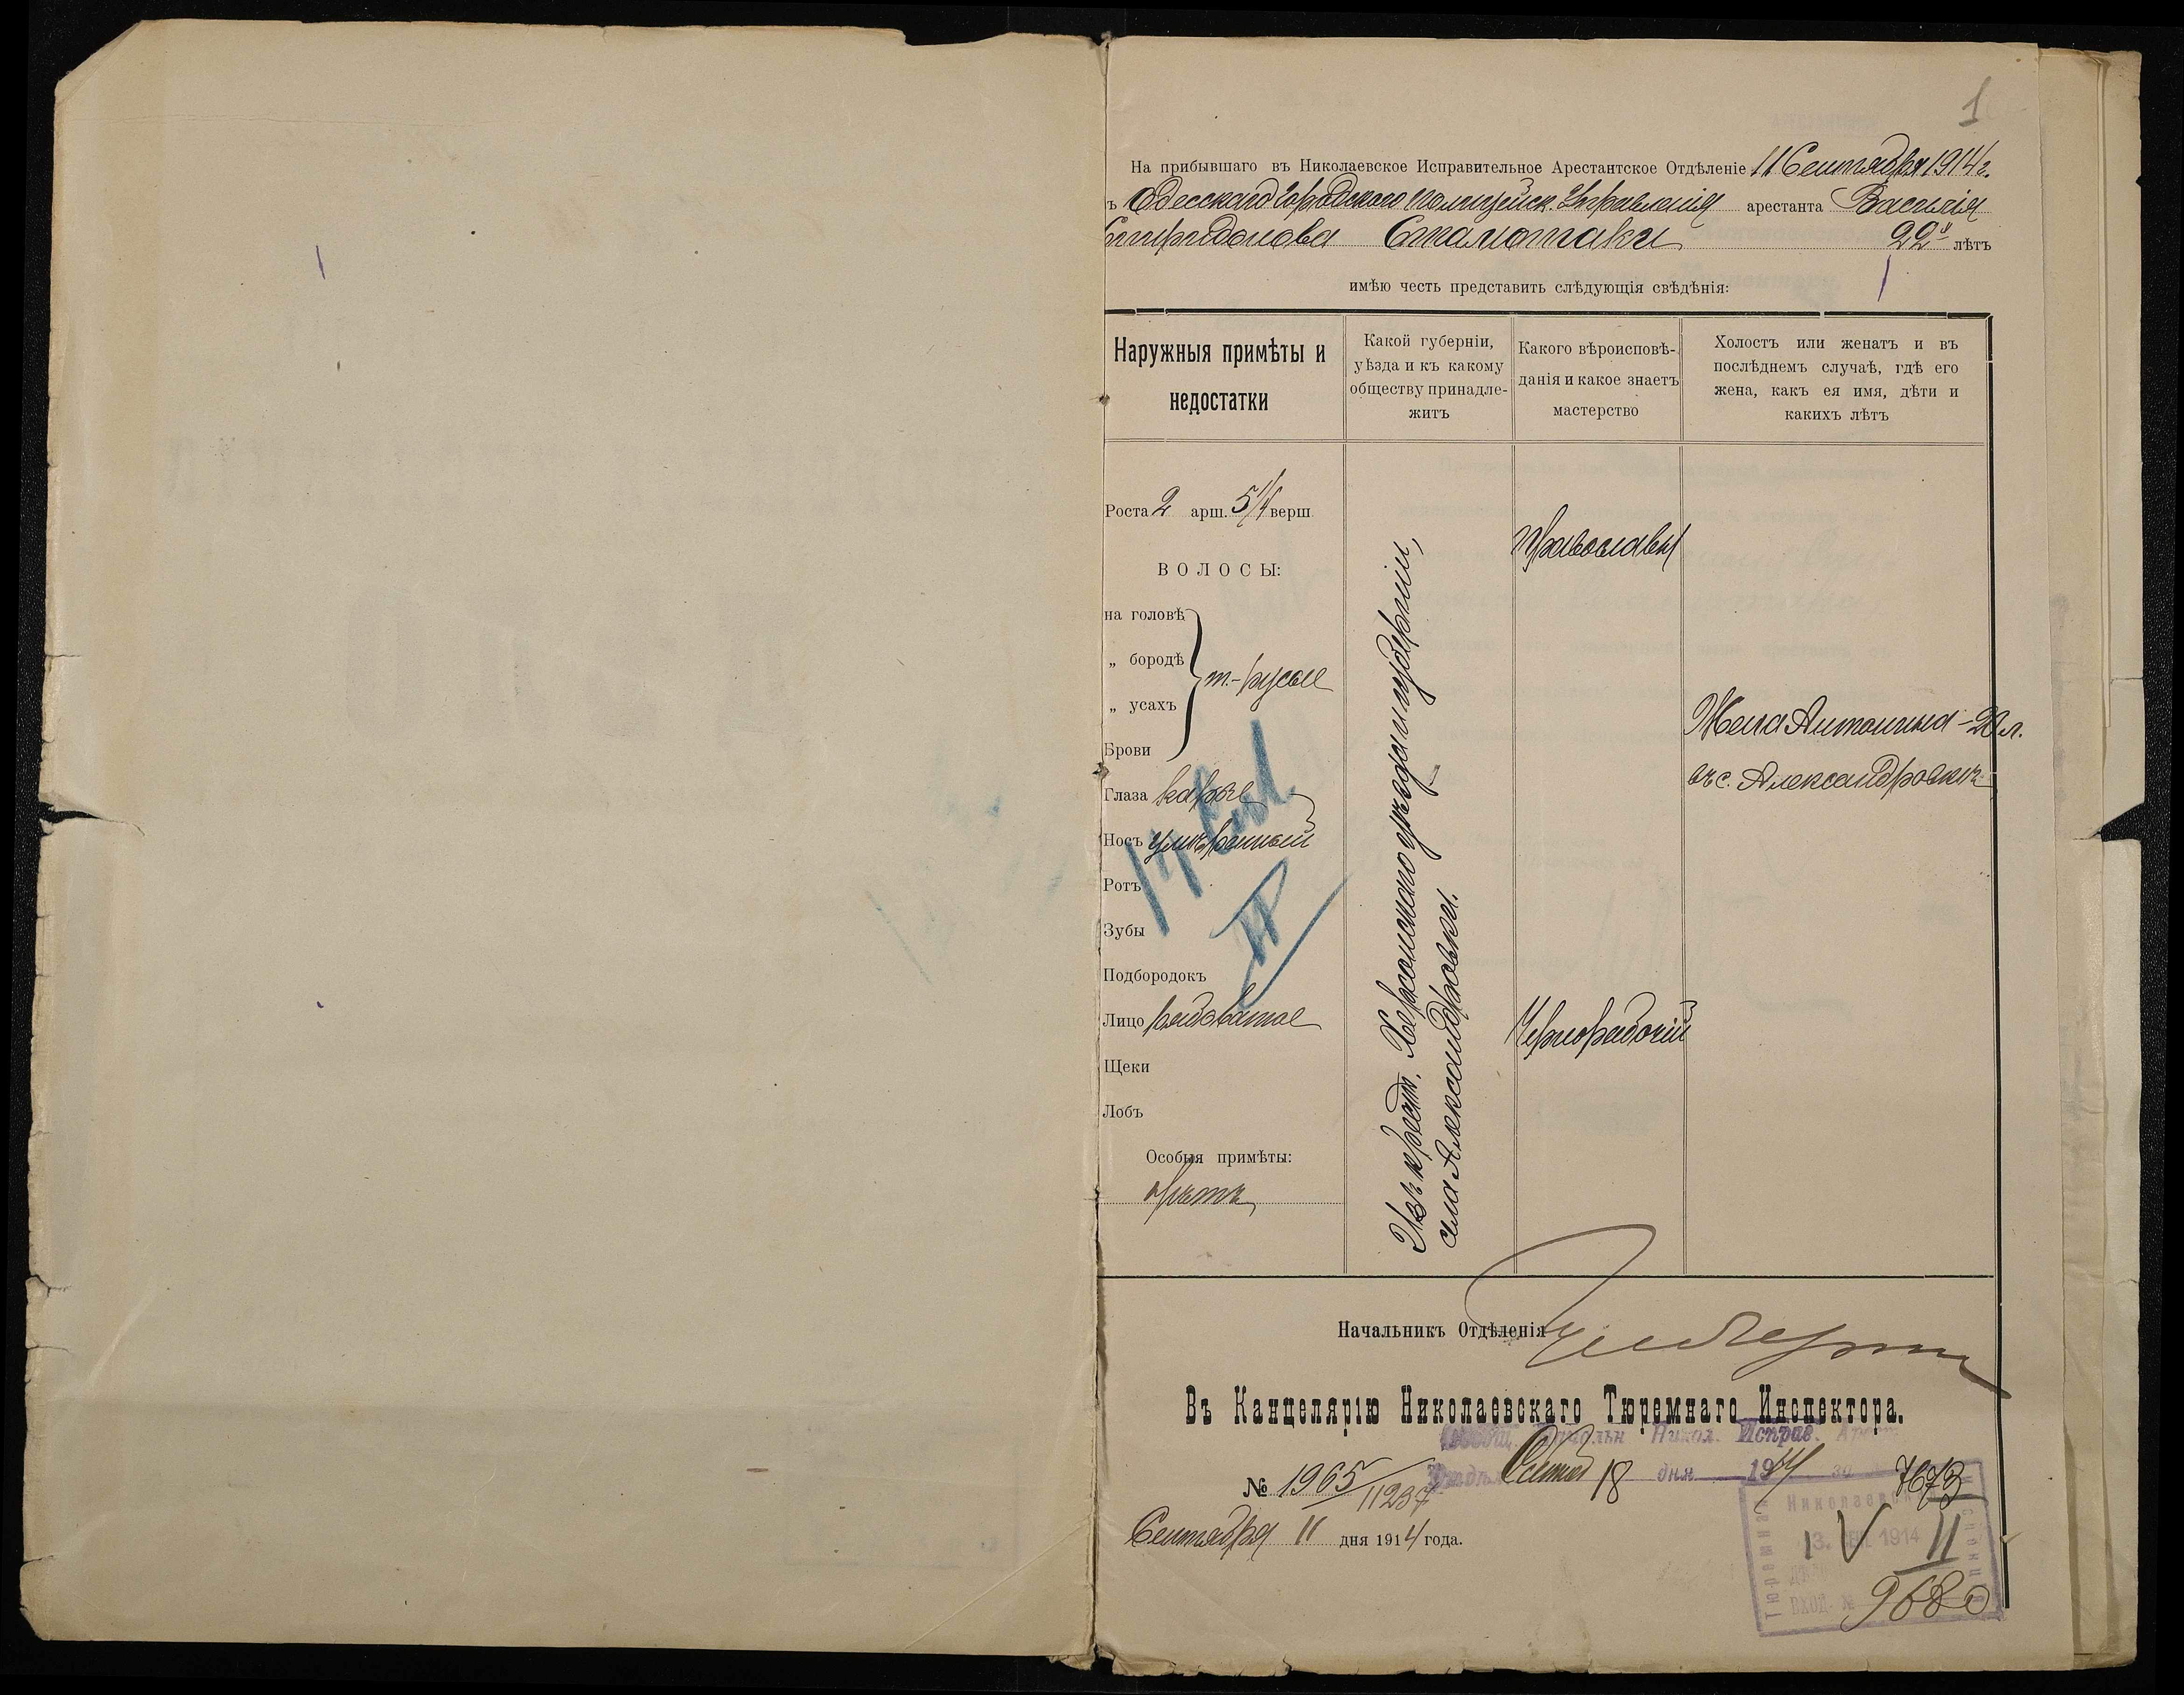 1
На прибывшаго въ Николаевское Исправительное Арестантское Отдѣленіе 11 Сентября 1914 г.
ъ Одесскаго Городского Полицейск. Управленія арестанта Василія
Спиридонова Стамотаки 22 лѣтъ
имѣю честь представить слѣдующія свѣдѣнія:
Наружныя примѣты и
недостатки
Какой губерніи,
уѣзда и къ какому
обществу принадле-
житъ
Какого вѣроисповѣ-
данія и какое знаетъ
мастерство
Холостъ или женатъ и въ
послѣднемъ случаѣ, гдѣ его
жена, какъ ея имя, дѣти и
какихъ лѣтъ
Роста 2 арш. 5 1/4 верш.
ВОЛОСЫ:
на головѣ
„ бородѣ
„ усахъ
т.-русые
Брови
Глаза каріе
Носъ умѣренный
Ротъ
Зубы
Подбородокъ
Лицо рябоватое
Щеки
Лобъ
Особыя примѣты:
нѣтъ
Изъ крест. Херсонскаго уѣзда и губерніи,
села Александровки.
Православн
Чернорабочій
Жена Антонина - 20 л.
въ с. Александровкѣ
Начальникъ Отдѣленія
Въ Канцелярію Николаевскаго Тюремнаго Инспектора.
Никол. Исправ.
18 дня 1914
7673
№ 1965
11237
Сентября 11 дня 1914 года.
Николаевск
Тюремная
1914
ВХОД. №
IV
II
9680